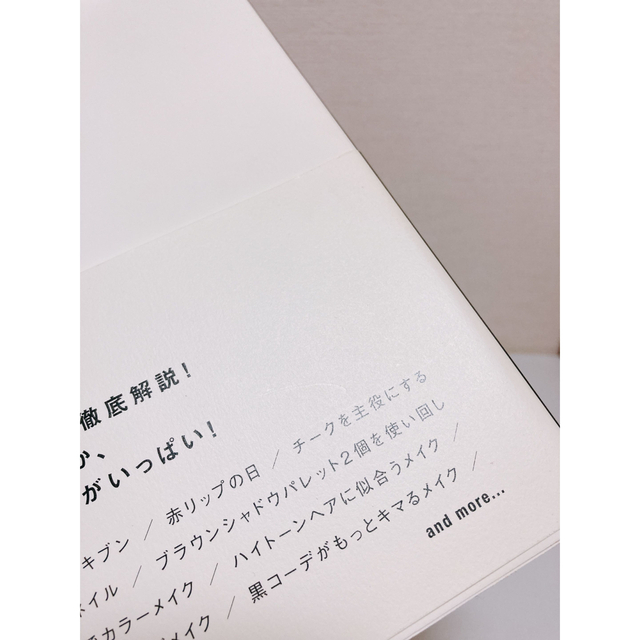 徹底解説！
か、
がいっぱい！
キブン / 赤リップの日 / チークを主役にする
ネイル / ブラウンシャドウパレット2個を使い回し
カラーメイク / ハイトーンヘアに似合うメイク /
メイク / 黒コーデがもっとキマるメイク /
and more...